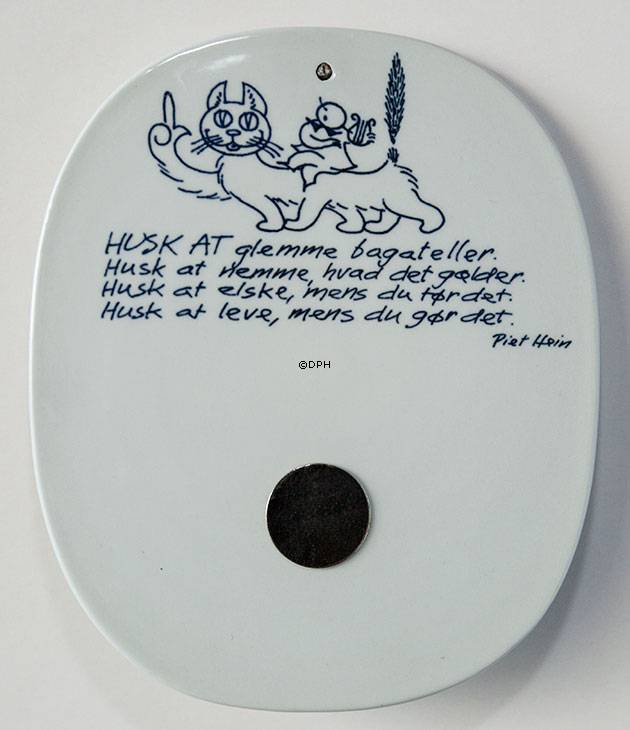 HUSK AT glemme bagateller.
Husk at nemme, hvad det gælder.
Husk at elske, mens du tør det.
Husk at leve, mens du gør det.
Piet Hein
©DPH